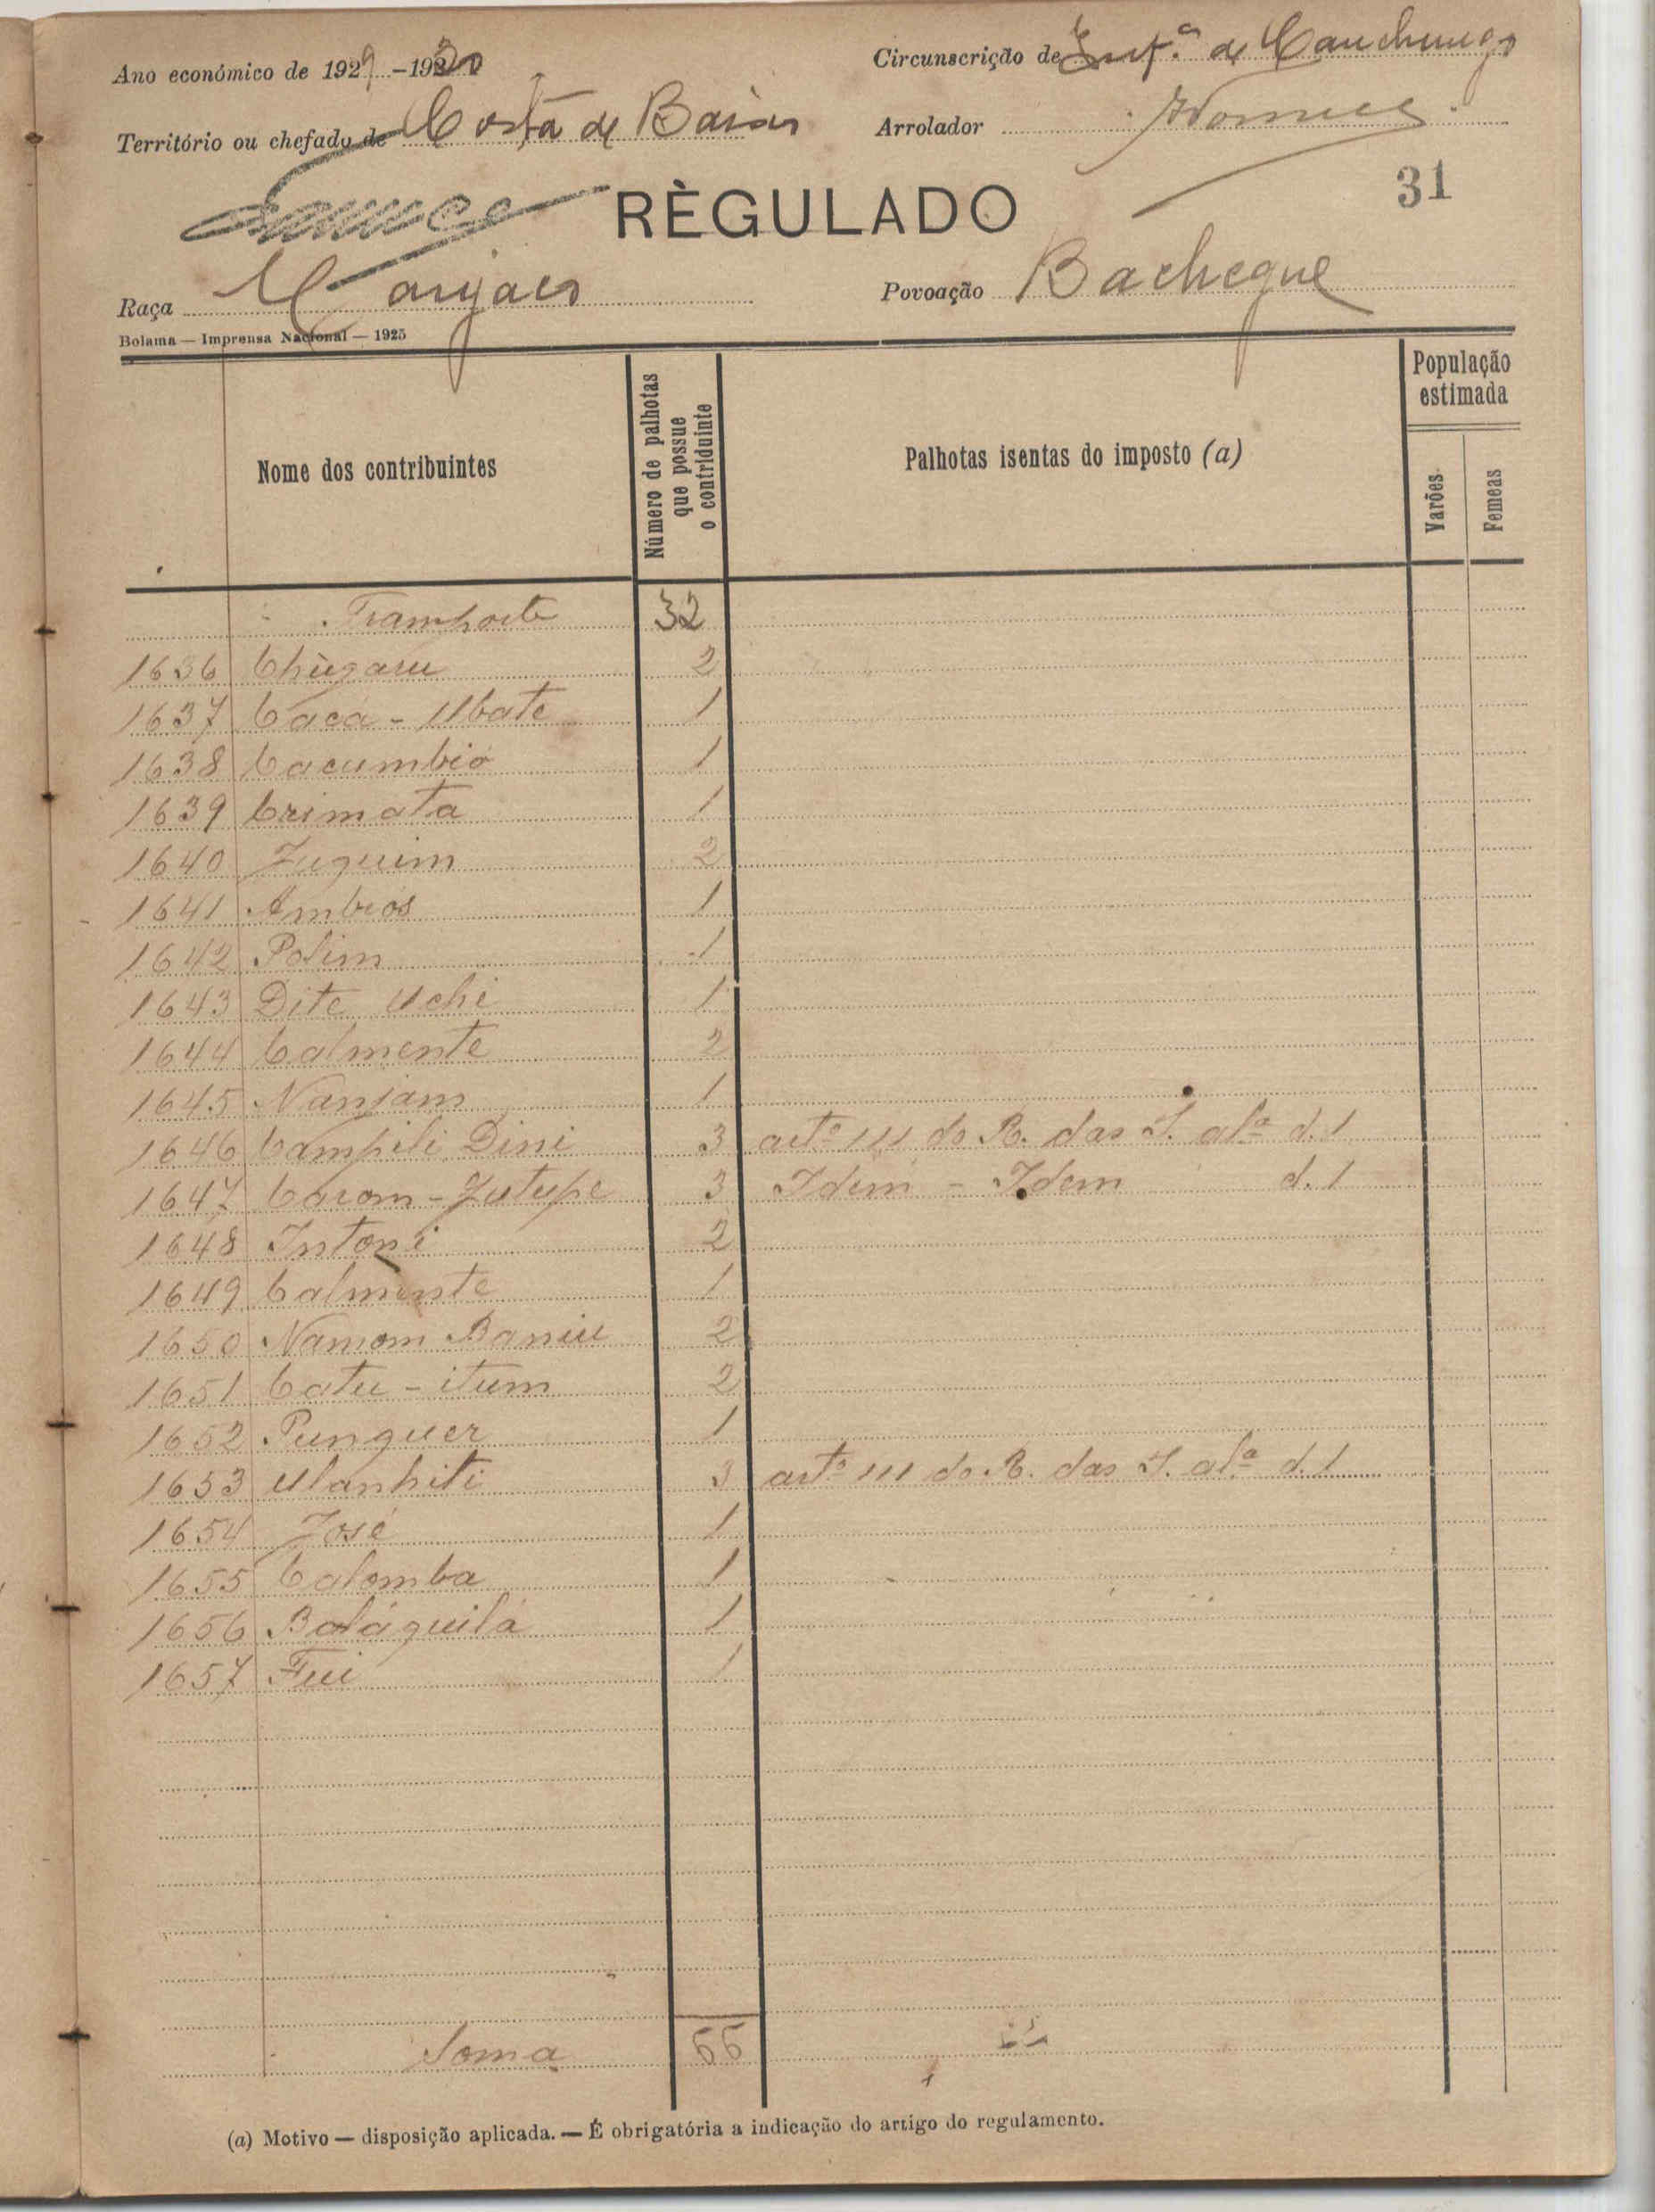 Ano económico de 1929 - 1930
Circunscrição de Int.ª de Canchungo
Território ou chefado de Costa de Baixo
Arrolador
31
RÈGULADO
Raça Manjaca
Povoação Bachegue
Bolama — Imprensa Nacional — 1925
Nome dos contribuintes
Número de palhotas que possue o contriduinte
Palhotas isentas do imposto (a)
População estimada
Varões
Femeas
Transporte 32
1636 Chùgaru 2
1637 Cacá - Ubate 1
1638 Cacumbió 1
1639 Crimata 1
1640 Juguim 2
1641 Ambiós 1
1642 Polim 1
1643 Dite Uchi 1
1644 Calmente 2
1645 Nanjam 1
1646 Campili Dini 3 artº 111 do R. das I. alª d. 1
1647 Carom - Jutupe 3 Idem - Idem d. 1
1648 Intoni 2
1649 Calmente 1
1650 Namom Baniu 2
1651 Catu - itum 2
1652 Punguer 1
1653 Ulanhiti 3 artº 111 do R. das I. alª d. 1
1654 José 1
1655 Calomba 1
1656 Baláquilá 1
1657 Fui 1
Soma 66
(a) Motivo — disposição aplicada. — É obrigatória a indicação do artigo do regulamento.